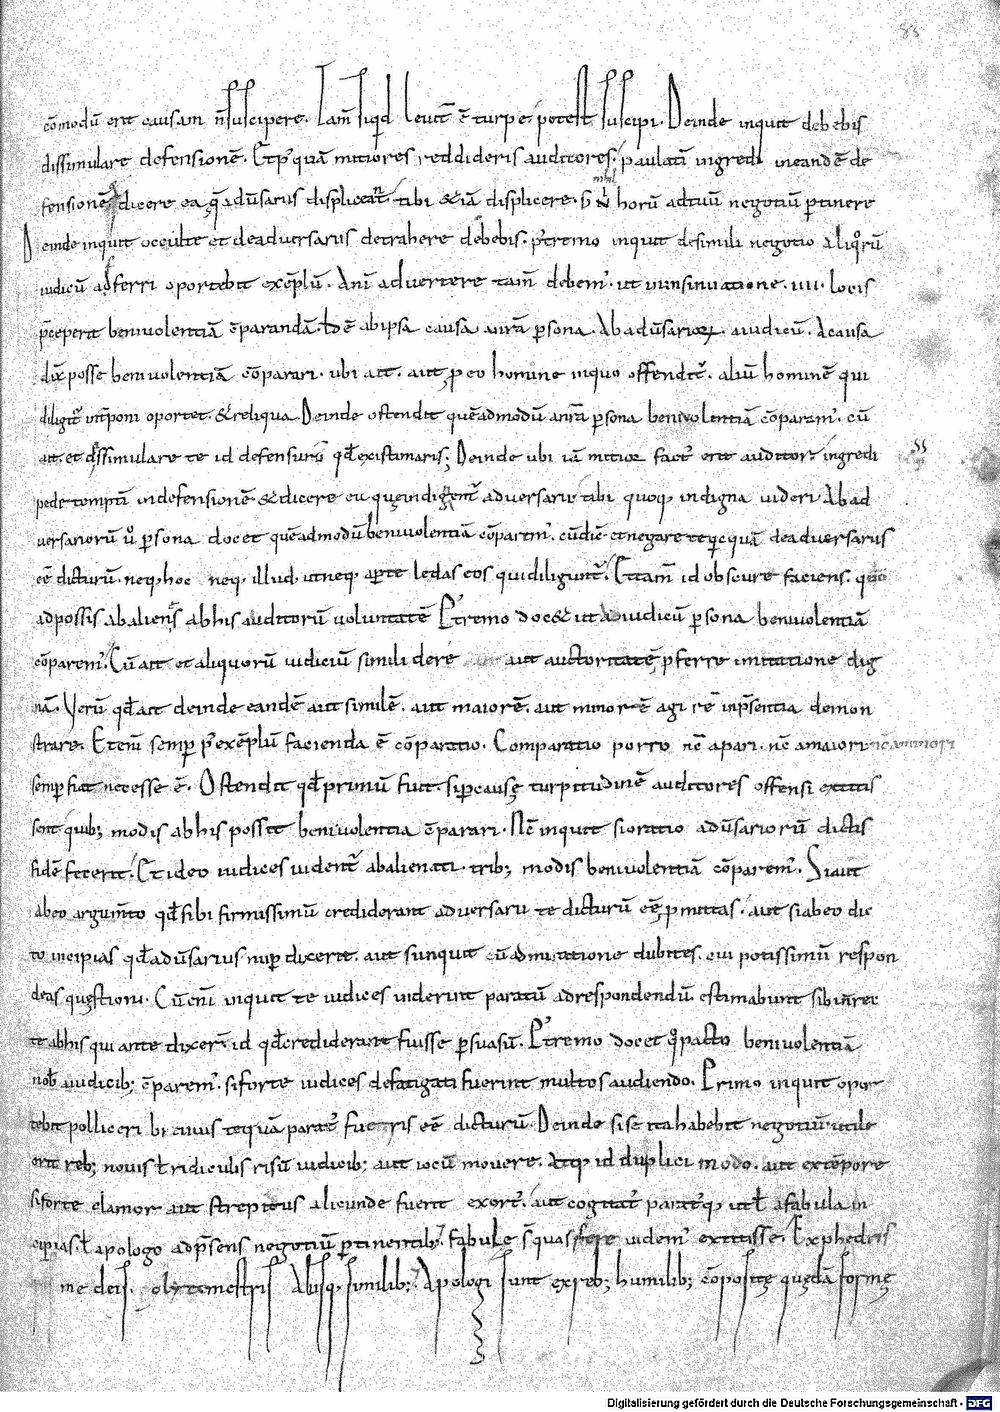 85
cōmodū erit causam n̄ suscipere. Iam̄ siqd leuit̄ ē turpe potest suscipi. Deinde inquit debebis
dissimulare defensionē. Et p'quā mitiores reddideris auditores. paulatī ingredi in eandē de
fensionē & dicere ea quę adūsariis displiceant tibi & iā displicere. s; nihil horū ad tuū negotiū ptinere
Deinde inquit occulte et de adversariis detrahere debebis. p'tremo inquit de simili negotio aliqorū
iudiciū adferri oportebit exēplū. Anī advertere tam̄ debem'. ut in insinuatione. iiii. locis
p̄ceperit benivolentiā cōparandā. id ē ab ipsa causa a nr̄a psona. Ab adūsariorum. a iudicū. A causa
dix̄ posse benivolentiā cōparari. ubi ait. aut p eo homine in quo offendit̄. aliū hominē qui
diligit̄ int̄poni oportet. & reliqua. Deinde ostendit quēadmodū a nr̄a psona benivolentiā cōparam'. cū
ait. et dissimulare te id defensurū qd existimaris; Deinde ubi iā mitior fact' erit auditor. ingredi
pedetemptī in defensionē & dicere ea quę indignent̄ adversarii tibi quoq; indigna videri. Ab ad
versariorū u° psona docet quēadmodū benivolentiā cōparem'. cū dic̄ et negare te qicquā de adversariis
eē dicturū. neq; hoc neq; illud. ut neq; apte ledas eos qui diligunt̄. Et tam̄ id obscure faciens. quo
ad possis abaliens ab his auditorū voluntatē P'tremo doc& ut a iudicū psona benivolentiā
cōparem'. Cū ait et aliquorū iudiciū simili de re aut auctoritatē pferre imitatione dig
nā. Verū qd ait deinde eandē aut similē. aut maiorē. aut minorē agi rē in p̄sentia demon
strare. Etenī semp p' exēplū facienda ē cōparatio. Comparatio porro nē a pari. nē a maiori nē a minori
semp fiat necesse ē. Ostendit qd primū fuit. si p causę turpitudinē auditores offensi extitis
sent quib; modis ab his possit benivolentia cōparari. Nē inquit si oratio adūsariorū dictis
fidē fecerit. Et ideo iudices vident̄ abalienati. trib; modis benivolentiā cōparem'. Si aut
ab eo argum̄to qd sibi firmissimū crediderant adversarii te dicturū eē pmittas. aut si ab eo dic
to incipias qd adūsarius nup dixerit. aut si inquit cū admiratione dubites. cui potissimū respon
deas quęstioni. Cū enī inquit te iudices viderint paratū ad respondendū. estimabunt sibi n̄ rec
te ab his qui ante dixer̄ id qd crediderant fuisse psuasū. P'tremo docet q°pacto benivolentiā
nob a iudicib; cōparem'. si forte iudices defatigati fuerint multos audiendo. Primo inquit opor
tebit polliceri brevius te quā parat' fueris eē dicturū. Deinde si se ita habebit negotiū. utile
erit reb; novis ł ridiculis risū iudicib; aut iocū movere. Atq; id duplici modo. aut extēpore
si forte clamor aut strepitus alicunde fuerit exort'. aut cogitat' parat'q; ut ł a fabula in
cipias. ł apologo ad p̄sens negotiū ptinentib; fabulę s̄ quas fere videm' extitisse. Ex phedris
me deis. clytemestris Ab isq; similib; Apologi sunt ex reb; humilib; cōpositę quędā formę
Digitalisierung gefördert durch die Deutsche Forschungsgemeinschaft - DFG